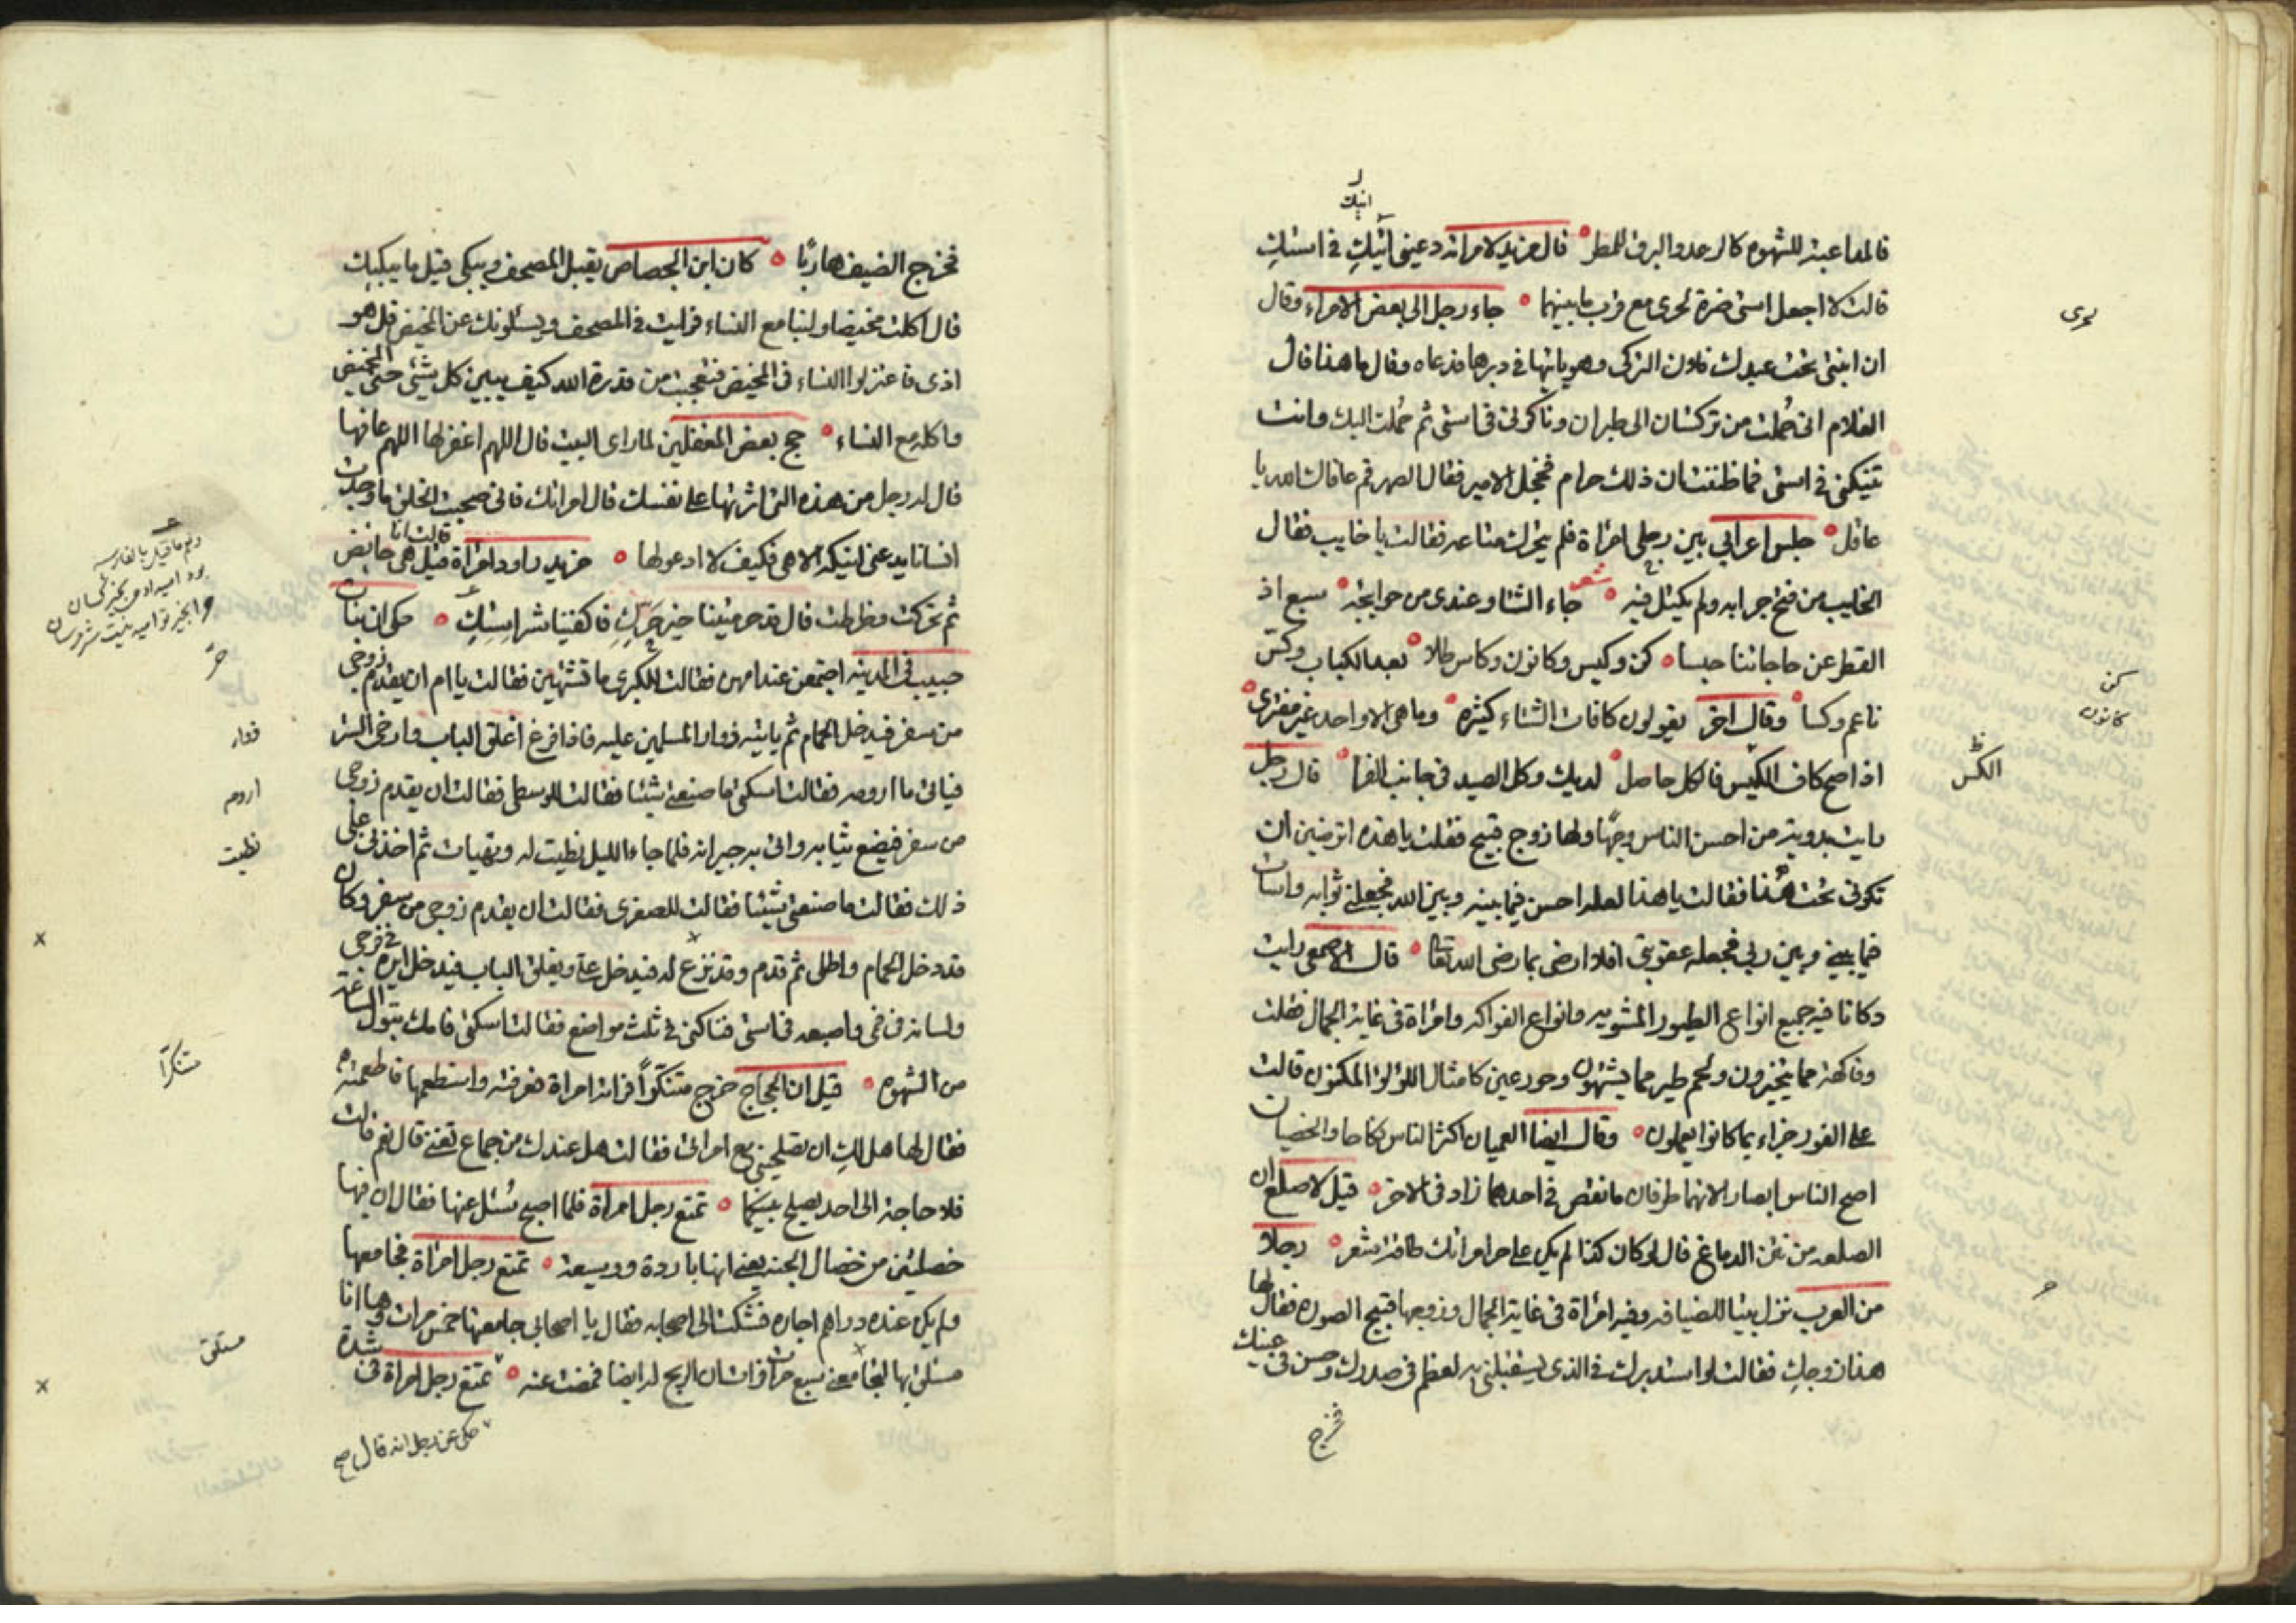 انيك
فالمداعبة للشهوه كالرعد والبرق للمطر قال مزيد لامراته دعيني انيك في استك
قالت لا اجعل استي ضرة لحرى مع قرب ما بينهما جاء رجل الى بعض الامراء وقال
ان ابنتي تحت عبدك فلان التركي وهو ياتيها في دبرها فدعاه وقال ما هذا قال
الغلام اني حُملت من تركستان الى طبران وناكوني في استي ثم حُملت اليك وانت
تنيكني في استي فما ظننت ان ذلك حرام فخجل الامير فقال الصهر قم عافاك الله يا
عاقل جلس اعرابي بين رجلي امراة فلم يتحرك متاعه فقالت يا خايب فقال
الخايب من فتح جرابه ولم يكتل فيه شعر جاء الشتا وعندى من حوايجه سبع اذ
القطر عن حاجاتنا حبسا كن وكيس وكانون وكاس طلا بعد الكباب وكس
ناعم وكسا وقال اخر يقولون كافات الشتاء كثيره وما هي الا واحد غير مفترى
اذا صح كاف الكيس فالكل حاصل لديك وكل الصيد في جانب الفرا قال رجل
رايت بدوية من احسن الناس وجهًا ولها زوج قبيح فقلت يا هذه اترضين ان
تكوني تحت هذا فقالت يا هذا لعله احسن فيما بينه وبين الله فجعلني ثوابه واسات
فيما بيني وبين ربي فجعله عقوبتي افلا ارضى بما رضى الله تعا قال الاصمعي رايت
دكانا فيه جميع انواع الطيور المشويه وانواع الفواكه وامراة في غاية الجمال فقلت
وفاكهة مما يتخيرون ولحم طير مما يشتهون وحور عين كامثال اللؤلؤ المكنون قالت
على الفور جزاء بما كانوا يعملون وقال ايضا العميان اكثر الناس نكاحا والخصيان
اصح الناس ابصارا لانهما طرفان ما نقص في احدهما زاد في الاخر قيل لاصلع ان
الصلعه من نتن الدماغ قال لو كان كذا لم يكن على حر امراتك طاقة شعر رجلا
من العرب نزل بيتا للضيافه وفيه امراة في غاية الجمال وزوجها قبيح الصوره فقال لها
هذا زوجك فقالت لو استدبرك في الذي يستقبلني به لعظم في صدرك وحسن في عينك
فخرج
لحرى
كن
كانون
الكس
حر
فخرج الضيف هاربًا كان ابن الجصاص يقبل المصحف ويبكي قيل ما يبكيك
قال اكلت مخيضا ولبنا مع النساء فرايت في المصحف ويسئلونك عن المحيض قل هو
اذى فاعتزلوا النساء في المحيض فتعجبت من قدرة الله كيف يبين كل شئ حتى المخيض
واكله مع النساء حج بعض المغفلين لما راى البيت قال اللهم اغفر لها اللهم عافها
قال له رجل من هذه التي اثرتها على نفسك قال امراتك فاني صحبت الخلق ما وجدت
انسانا يدعني انيكه الا هي فكيف لا ادعو لها مزيد راود امراة قالت انا حايض
ثم تحركت وضرطت قال قد حرمتينا خير حرك فاكفينا شر استك حكى ان بنات
حبيب في المدينه اجتمعن عند امهن فقالت للكبرى ما تشتهين فقالت يا ام ان يقدم زوجي
من سفر فيدخل الحمام ثم ياتيه زوار المسلمين عليه فاذا فرغ اغلق الباب وارخى الستر
فياتي ما اروم فقالت اسكتي ما صنعتي شيئا فقالت للوسطى فقالت ان يقدم زوجي
من سفر فيضع ثيابه واتى به جيرانه فلما جاء الليل نطيت له وتهيات ثم اخذني على
ذلك فقالت ما صنعتي شيئا فقالت للصغرى فقالت ان يقدم زوجي من سفر وكان
قد دخل الحمام واطلى ثم قدم وقد نزع له فيدخل علي ويغلق الباب فيدخل ايره في فرجي
ولسانه في فمي واصبعه في استي فناكني في ثلث مواضع فقالت اسكتي فامك تبول الساعة
من الشهوه قيل ان الحجاج خرج متنكرًا فراته امراة فعرفته واستطعمها فاطعمته
فقال لها هل لك ان تصلحيني مع امراتي فقالت هل عندك من جماع تعني قال نعم قالت
فلا حاجة الى احد يصلح بينكما تمتع رجل امراة فلما اصبح سُئل عنها فقال ان فيها
خصلتين من خصال الجنة يعني انها باردة ووسيعة تمتع رجل امراة فجامعها
ولم يكن عنده دراهم اجاره فشكت الى اصحابه فقال يا اصحابي جامعتها خمس مرات وها انا
مستلق بها لتجامعني سبع مرات وان شات الربح لها ايضا فمضت عنه تمتع رجل امراة في شدة
حكى عن رجل انه قال صح
ونعم ما قيل بالفارسيه
حر
زوار
اروم
نطيت
متنكرًا
مستلق